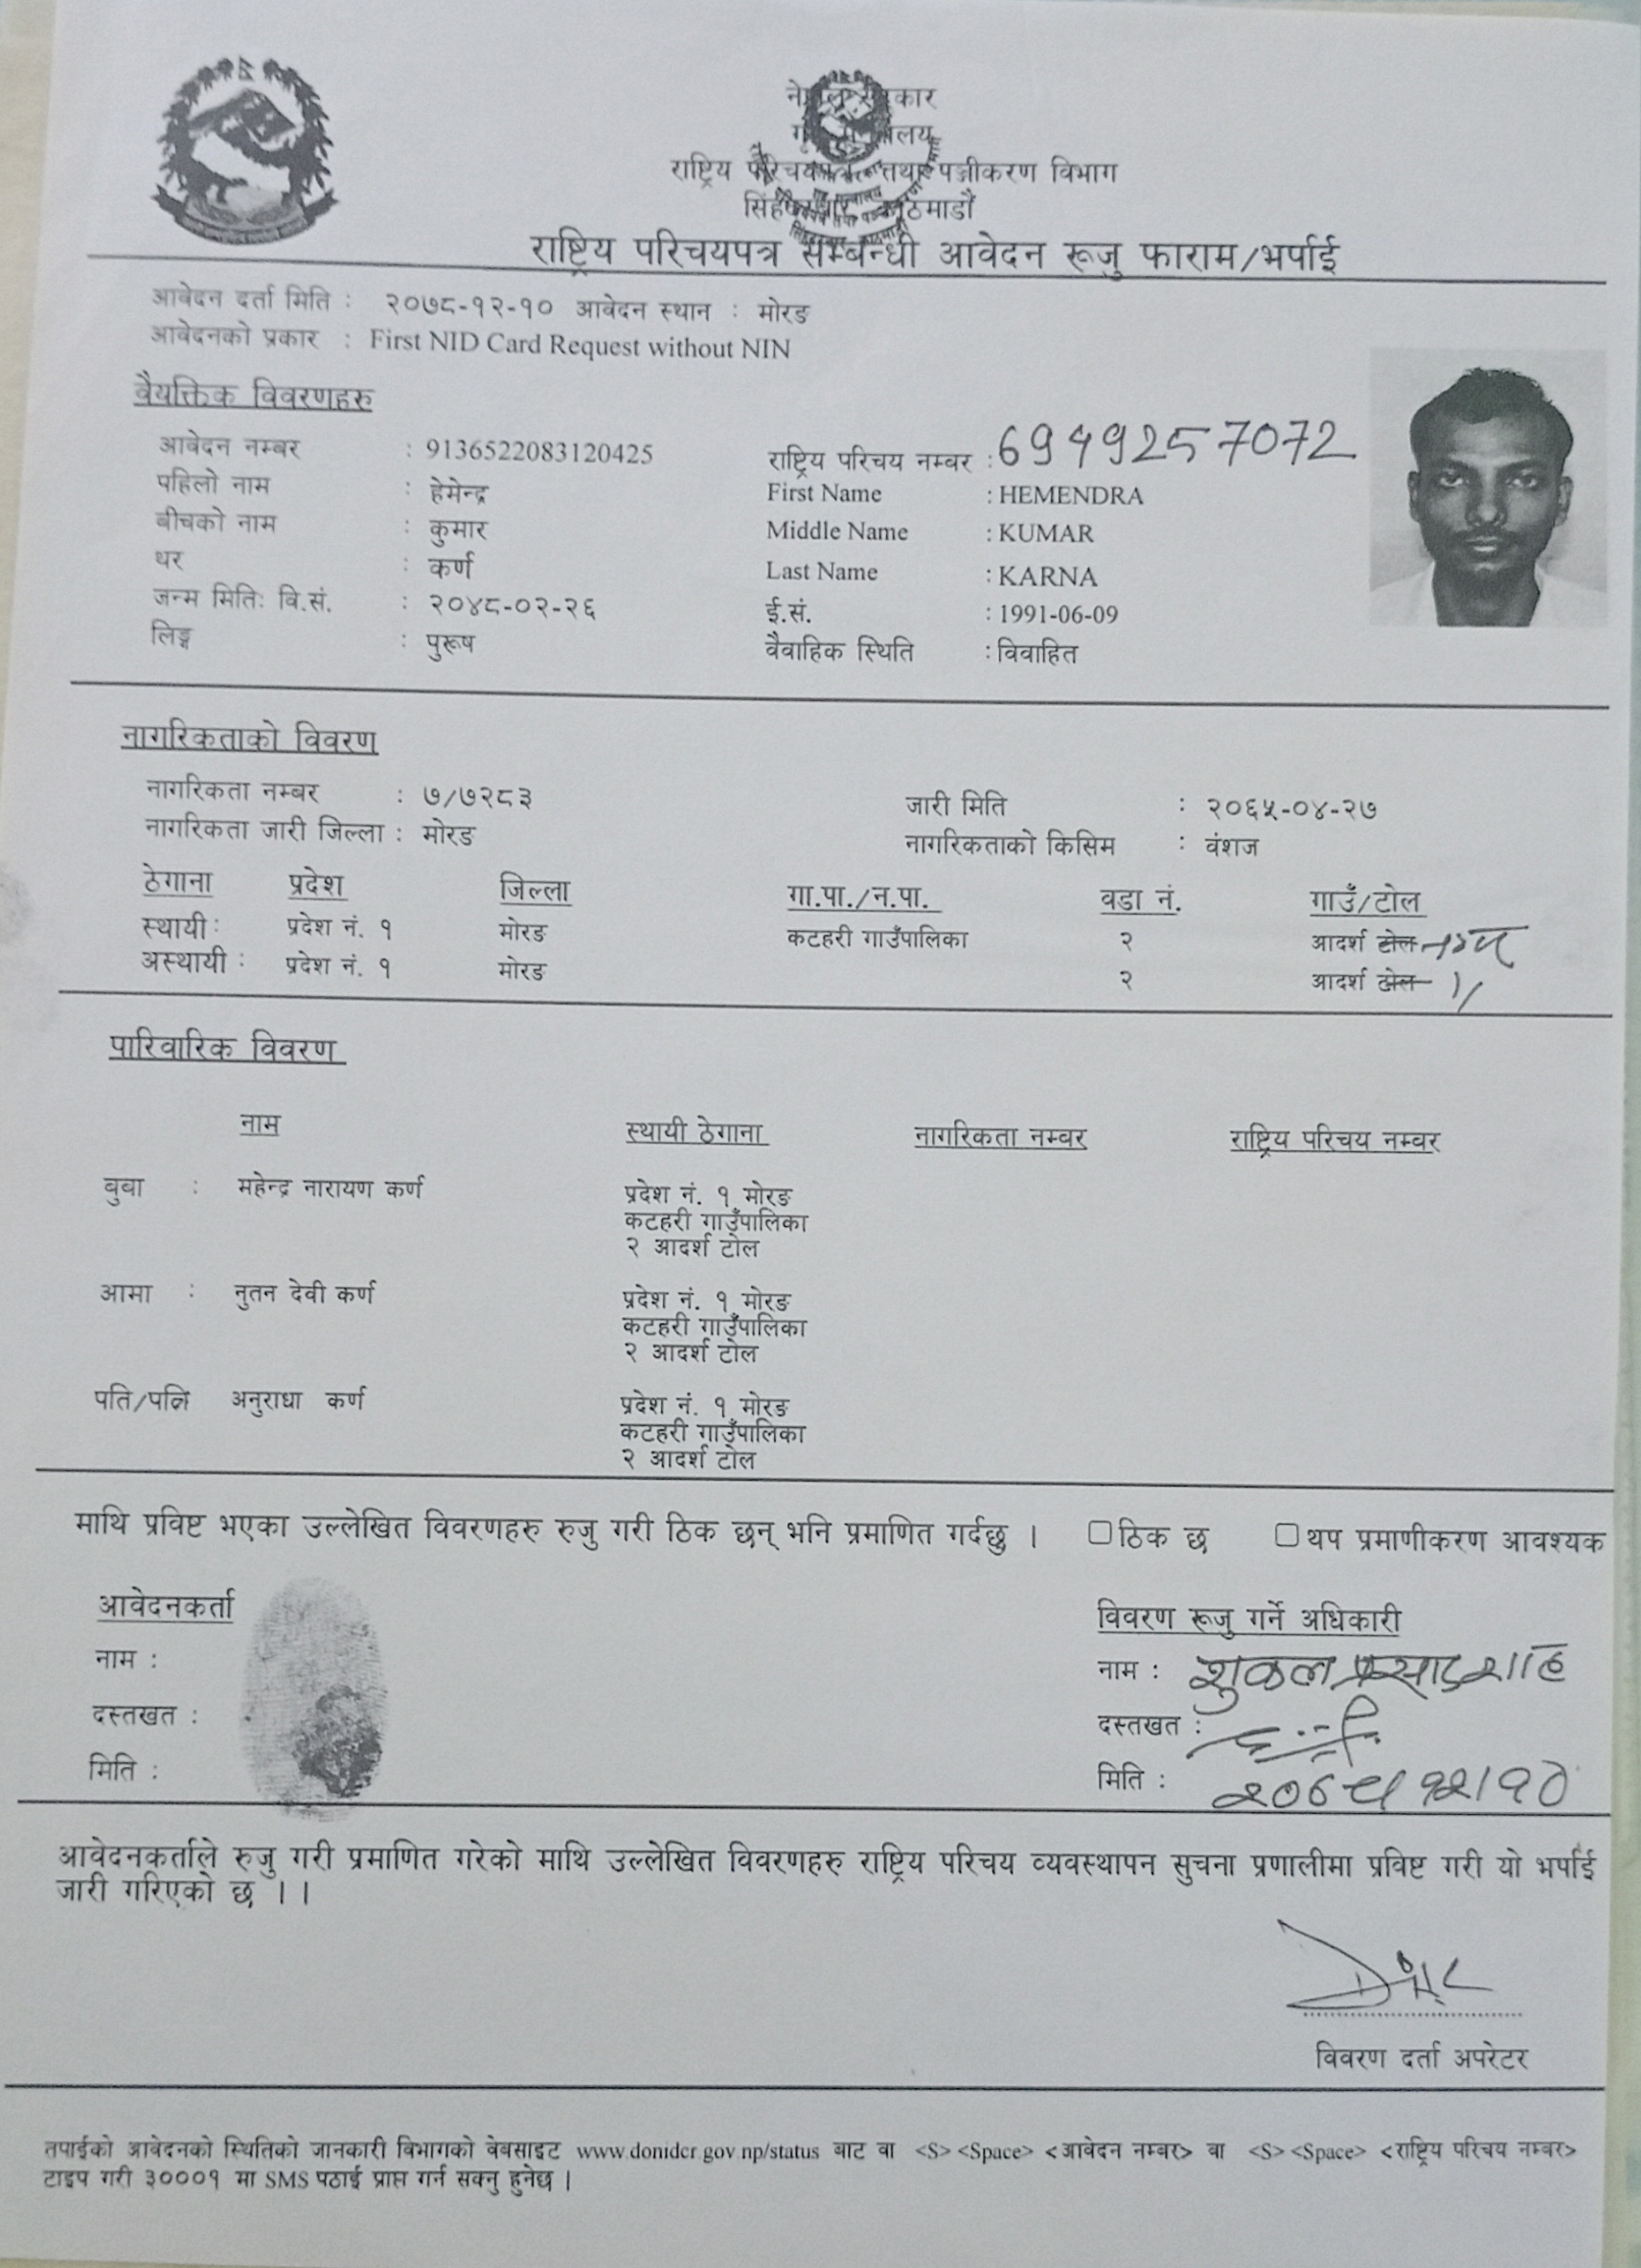 नेपाल सरकार
गृह मन्त्रालय
राष्ट्रिय परिचयपत्र तथा पञ्जीकरण विभाग
सिंहदरबार काठमाडौं
राष्ट्रिय परिचयपत्र सम्बन्धी आवेदन रूजु फाराम/भर्पाई
आवेदन दर्ता मिति : २०७८-१२-१० आवेदन स्थान : मोरङ
आवेदनको प्रकार : First NID Card Request without NIN
वैयक्तिक विवरणहरु
आवेदन नम्बर : 9136522083120425 राष्ट्रिय परिचय नम्बर : 6949257072
पहिलो नाम : हेमेन्द्र First Name : HEMENDRA
बीचको नाम : कुमार Middle Name : KUMAR
थर : कर्ण Last Name : KARNA
जन्म मितिः वि.सं. : २०४८-०२-२६ ई.सं. : 1991-06-09
लिङ्ग : पुरूष वैवाहिक स्थिति : विवाहित
नागरिकताको विवरण
नागरिकता नम्बर : ७/७२८३ जारी मिति : २०६५-०४-२७
नागरिकता जारी जिल्ला : मोरङ नागरिकताको किसिम : वंशज
ठेगाना प्रदेश जिल्ला गा.पा./न.पा. वडा नं. गाउँ/टोल
स्थायी : प्रदेश नं. १ मोरङ कटहरी गाउँपालिका २ आदर्श टोल
अस्थायी : प्रदेश नं. १ मोरङ २ आदर्श टोल
पारिवारिक विवरण
नाम स्थायी ठेगाना नागरिकता नम्बर राष्ट्रिय परिचय नम्बर
बुबा : महेन्द्र नारायण कर्ण प्रदेश नं. १ मोरङ
कटहरी गाउँपालिका
२ आदर्श टोल
आमा : नुतन देवी कर्ण प्रदेश नं. १ मोरङ
कटहरी गाउँपालिका
२ आदर्श टोल
पति/पत्नि अनुराधा कर्ण प्रदेश नं. १ मोरङ
कटहरी गाउँपालिका
२ आदर्श टोल
माथि प्रविष्ट भएका उल्लेखित विवरणहरु रुजु गरी ठिक छन् भनि प्रमाणित गर्दछु । ठिक छ थप प्रमाणीकरण आवश्यक
आवेदनकर्ता विवरण रूजु गर्ने अधिकारी
नाम : नाम : शुकल प्रसाद शाह
दस्तखत : दस्तखत :
मिति : मिति : २०७८/१२/१०
आवेदनकर्ताले रुजु गरी प्रमाणित गरेको माथि उल्लेखित विवरणहरु राष्ट्रिय परिचय व्यवस्थापन सुचना प्रणालीमा प्रविष्ट गरी यो भर्पाई
जारी गरिएको छ ।।
विवरण दर्ता अपरेटर
तपाईको आवेदनको स्थितिको जानकारी विभागको वेबसाइट www.donidcr.gov.np/status बाट वा <S><Space><आवेदन नम्बर> वा <S><Space><राष्ट्रिय परिचय नम्बर>
टाइप गरी ३०००१ मा SMS पठाई प्राप्त गर्न सक्नु हुनेछ ।